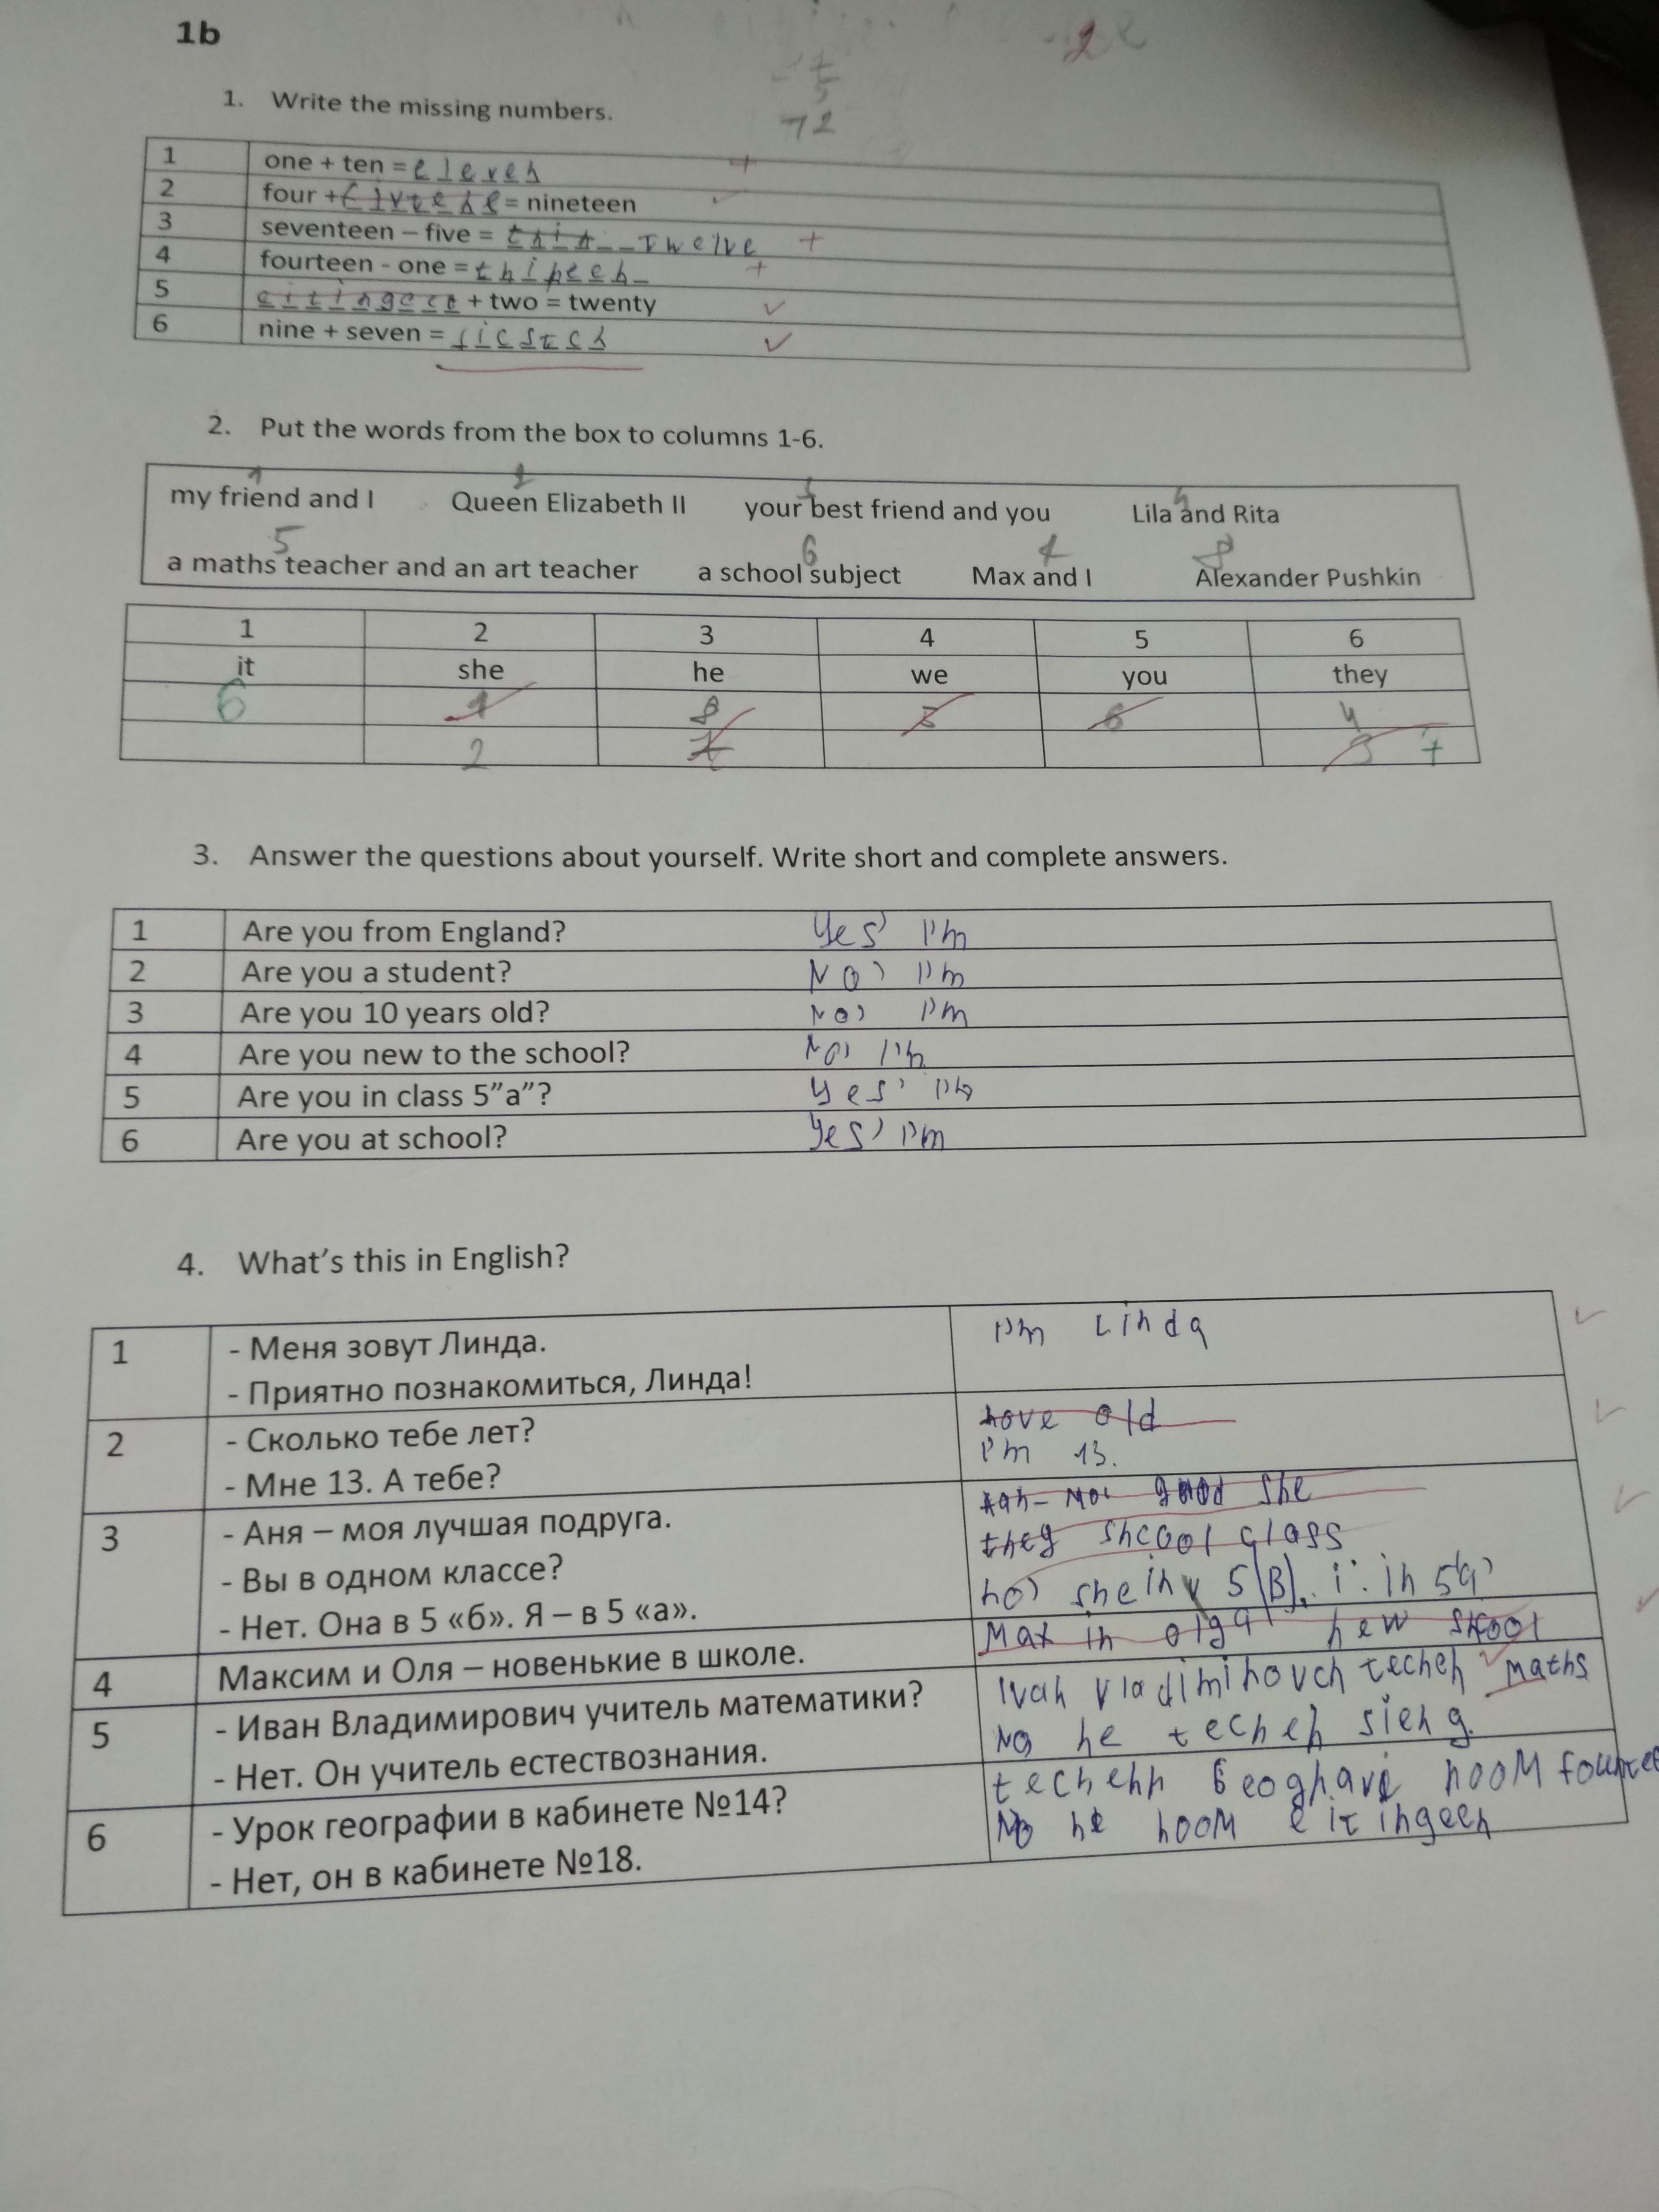 1b
1. Write the missing numbers.
1 one + ten = eleven +
2 four + = nineteen
3 seventeen – five = twelve +
4 fourteen - one = +
5 + two = twenty
6 nine + seven =
72
2. Put the words from the box to columns 1-6.
1 2 4
my friend and I Queen Elizabeth II your best friend and you Lila and Rita
5 6 8
a maths teacher and an art teacher a school subject Max and I Alexander Pushkin
1 2 3 4 5 6
it she he we you they
6 1 8 6 4
2 7
3. Answer the questions about yourself. Write short and complete answers.
1 Are you from England? Yes' I'm
2 Are you a student? No' I'm
3 Are you 10 years old? No, I'm
4 Are you new to the school? No, I'm
5 Are you in class 5”a”? Yes' I'm
6 Are you at school? Yes' I'm
4. What’s this in English?
1 - Меня зовут Линда. I'm Linda
- Приятно познакомиться, Линда!
2 - Сколько тебе лет? hove old
- Мне 13. А тебе? I'm 13.
3 - Аня – моя лучшая подруга. good she
- Вы в одном классе? they shcool class
- Нет. Она в 5 «б». Я – в 5 «а». no' she in 5 (B). i in 5
4 Максим и Оля – новенькие в школе. Max in olga new skool
5 - Иван Владимирович учитель математики? Ivan techer maths
- Нет. Он учитель естествознания. No he techer
6 - Урок географии в кабинете №14? room
- Нет, он в кабинете №18. No he room eitingeen